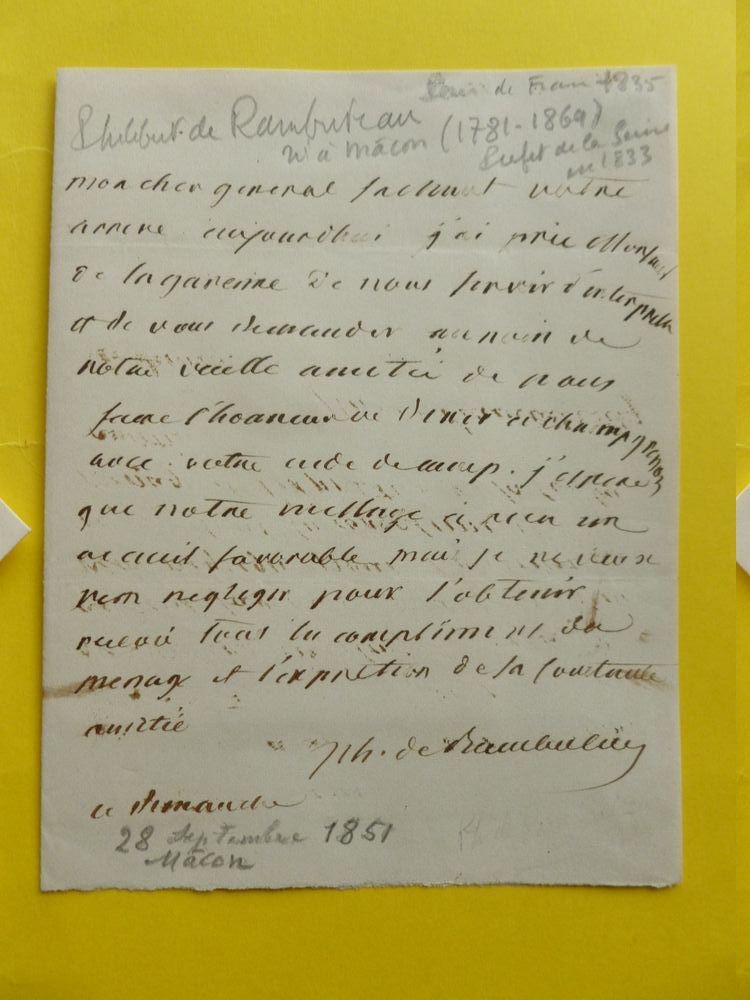 Pair de Fran 1835
Philibert de Rambuteau
né à Mâcon (1781-1869)
Préfet de la Seine
en 1833
mon cher general sachant votre
arrivé aujourdhui j'ai prié Monsieur
de lagarenne de nous servir d'interprete
et de vous demander au nom de
notre vieille amitié de nous
faire l'honneur de diner a champgrenon
avec votre aide de camp. j'espere
que notre message a recu un
accueil favorable mais je ne veux
rien negliger pour l'obtenir
recevé tous les compliments du
menage et l'expression de sa constante
amitié
Ph. de Rambuteau
ce dimanche
28 septembre 1851
Mâcon